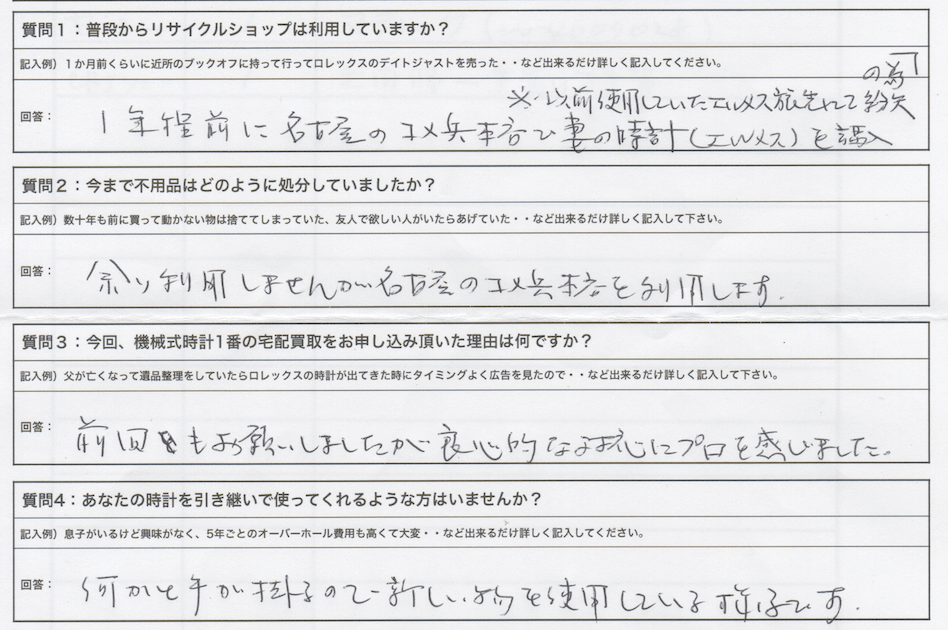 質問１：普段からリサイクルショップは利用していますか？
記入例）１か月前くらいに近所のブックオフに持って行ってロレックスのデイトジャストを売った・・など出来るだけ詳しく記入してください。
の為
※以前使用していたエルメス旅先にて紛失
回答：
1年程前に名古屋のコメ兵本店で妻の時計(エルメス)を購入
質問２：今まで不用品はどのように処分していましたか？
記入例）数十年も前に買って動かない物は捨ててしまっていた、友人で欲しい人がいたらあげていた・・など出来るだけ詳しく記入して下さい。
回答：
余り利用しませんが名古屋のコメ兵本店を利用します.
質問３：今回、機械式時計1番の宅配買取をお申し込み頂いた理由は何ですか？
記入例）父が亡くなって遺品整理をしていたらロレックスの時計が出てきた時にタイミングよく広告を見たので・・など出来るだけ詳しく記入して下さい。
回答：
前回もお願いしましたが良心的な対応にプロを感じました.
質問4：あなたの時計を引き継いで使ってくれるような方はいませんか？
記入例）息子がいるけど興味がなく、5年ごとのオーバーホール費用も高くて大変・・など出来るだけ詳しく記入してください。
回答：
何かと手が掛るので新しい物を使用している様子です.